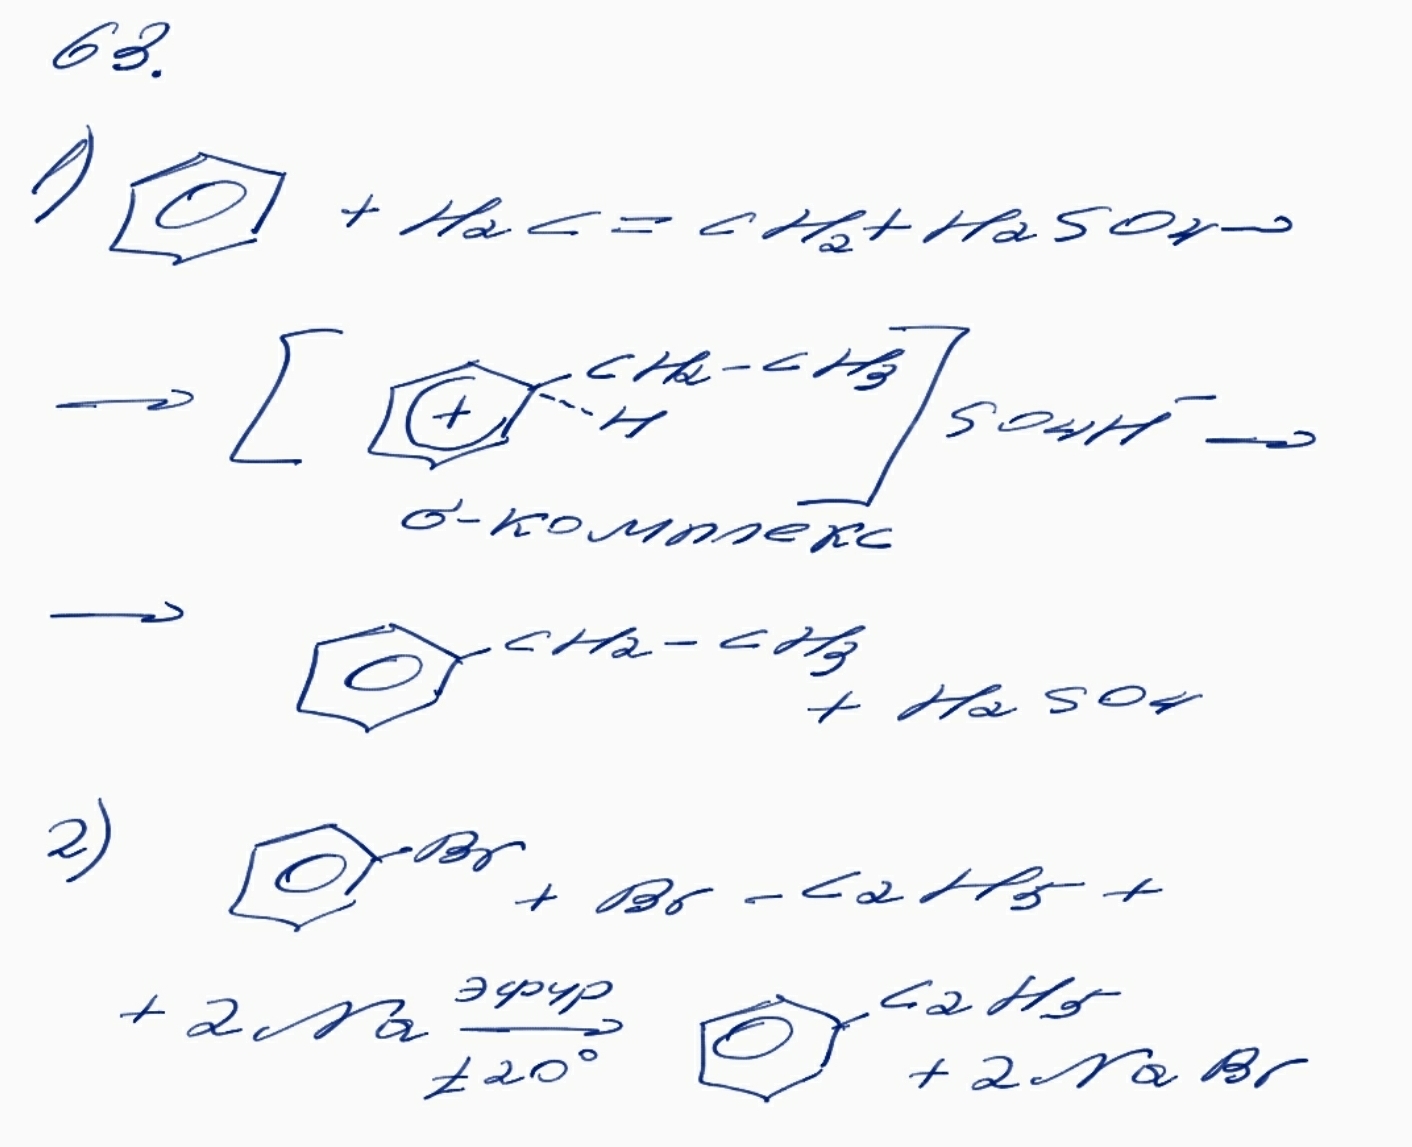 63.
1) + H2C = CH2 + H2SO4 →
→ [ + CH2-CH3 H ] SO4H⁻ →
σ-комплекс
→ CH2-CH3
+ H2SO4
2) Br + Br-C2H5 +
+ 2Na эфир ±20° → C2H5
+ 2NaBr